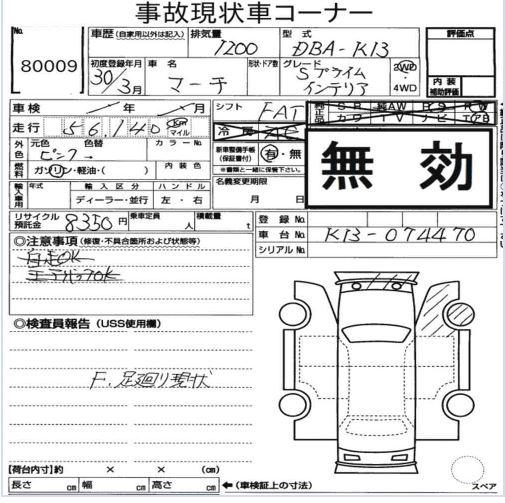 事故現状車コーナー
No. 80009
車歴 (自家用以外は記入)
排気量 1200
型式 DBA-K13
評価点
初度登録年月 30/3月
車名 マーチ
形状・ドア数
グレード Sプライム インテリア
2WD・4WD
内装補助評価
車検 年 月
シフト FAT
走行 56,140 km マイル
冷房
SR 純AW PS PW
カワ TV ナビ エアB
無効
外色 元色 ピンク→ 色替 カラーNo.
新車整備手帳(保証書付) 有・無
※書類と一緒に保管下さい。
燃料 ガソリン・軽油・( ) 内装色
名義変更期限
月 日
輸入車用 年式 輸入区分 ディーラー・並行 ハンドル 左・右
リサイクル預託金 8350円
乗車定員 人
積載量 t
登録No.
車台No. K13-074470
シリアルNo.
◎注意事項 (修復・不具合箇所および状態等)
自走OK
エアバックOK
◎検査員報告 (USS使用欄)
F.足廻り現状
【荷台内寸】約 × × (cm)
長さ cm 幅 cm 高さ cm ←(車検証上の寸法)
スペア